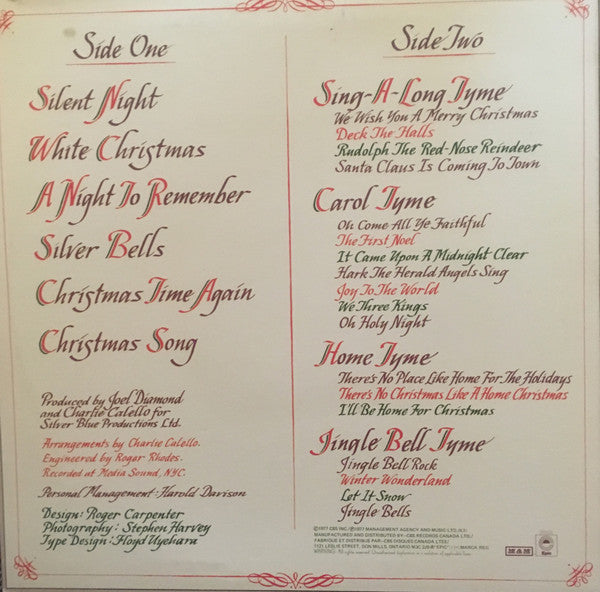 Side One
Silent Night
White Christmas
A Night To Remember
Silver Bells
Christmas Time Again
Christmas Song
Produced by Joel Diamond
and Charlie Calello for
Silver Blue Productions Ltd.
Arrangements by Charlie Calello.
Engineered by Rogar Rhodes.
Recorded at Media Sound, NYC.
Personal Management: Harold Davison
Design: Roger Carpenter
Photography: Stephen Harvey
Type Design: Floyd Uyehara
Side Two
Sing-A-Long Tyme
We Wish You A Merry Christmas
Deck The Halls
Rudolph The Red-Nose Reindeer
Santa Claus Is Coming To Town
Carol Tyme
Oh Come All Ye Faithful
The First Noel
It Came Upon A Midnight Clear
Hark The Herald Angels Sing
Joy To The World
We Three Kings
Oh Holy Night
Home Tyme
There's No Place Like Home For The Holidays
There's No Christmas Like A Home Christmas
I'll Be Home For Christmas
Jingle Bell Tyme
Jingle Bell Rock
Winter Wonderland
Let It Snow
Jingle Bells
©1977 CBS INC./℗1977 MANAGEMENT AGENCY AND MUSIC LTD.
MANUFACTURED AND DISTRIBUTED BY: CBS RECORDS CANADA LTD./
FABRIQUÉ ET DISTRIBUÉ PAR: CBS DISQUES CANADA LTÉE/
1121 LESLIE STREET, DON MILLS, ONTARIO "EPIC", MARCA REG.
WARNING: All rights reserved. Unauthorized duplication is a violation of applicable laws.
MAM
Epic